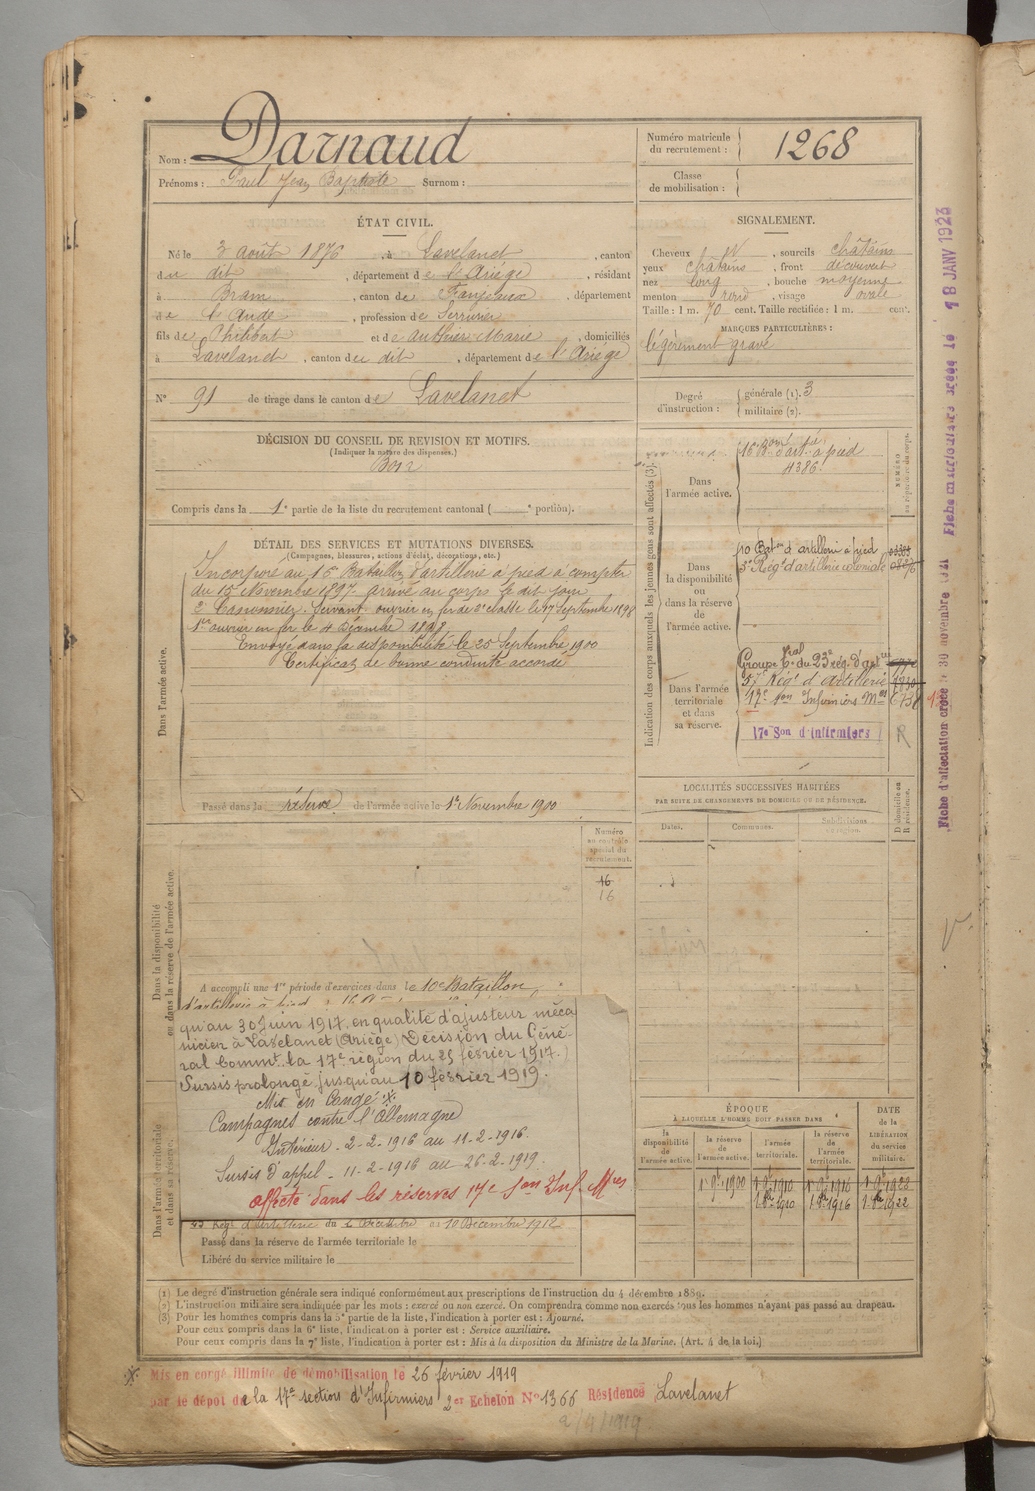 Nom : Darnaud
Prénoms : Paul Jean Baptiste Surnom :
Numéro matricule du recrutement : 1268
Classe de mobilisation :
ÉTAT CIVIL.
Né le 3 août 1876, à Lavelanet, canton
du dit, département de l'Ariège, résidant
à Bram, canton de Fanjeaux, département
de l'Aude, profession de Serrurier
fils de Philibert et de Authier Marie, domiciliés
à Lavelanet, canton du dit, département de l'Ariège
N° 91 de tirage dans le canton de Lavelanet
SIGNALEMENT.
Cheveux N, sourcils châtains
yeux châtains, front découvert
nez long, bouche moyenne
menton rond, visage ovale
Taille : 1 m. 70 cent. Taille rectifiée : 1 m. cent.
MARQUES PARTICULIÈRES :
légèrement gravé
Degré d'instruction : générale (1). 3
militaire (2).
DÉCISION DU CONSEIL DE REVISION ET MOTIFS.
(Indiquer la nature des dispenses.)
Bon
Compris dans la 1e partie de la liste du recrutement cantonal ( e portion).
DÉTAIL DES SERVICES ET MUTATIONS DIVERSES.
(Campagnes, blessures, actions d'éclat, décorations, etc.)
Dans l'armée active.
Incorporé au 16e Bataillon d'artillerie à pied à compter
du 15 Novembre 1897, arrivé au corps le dit jour
2e Canonnier. Servant ouvrier en fer de 2e classe le 17 Septembre 1898
1er ouvrier en fer le 4 Décembre 1898.
Envoyé dans la disponibilité le 25 Septembre 1900
Certificat de bonne conduite accordé
Passé dans la réserve de l'armée active le 1er Novembre 1900
Indication des corps auxquels les jeunes gens sont affectés (3).
NUMÉRO au répertoire du corps.
Dans l'armée active.
16e Bon d'art. à pied
4386
Dans la disponibilité ou dans la réserve de l'armée active.
10 Baton d'artillerie à pied
3e Régt d'artillerie coloniale
Dans l'armée territoriale et dans sa réserve.
Groupe tral de 6e du 23e rég. d'art
57e Régt d'Artillerie
17e son Infirmiers Mres
17e Son d'Infirmiers R
LOCALITÉS SUCCESSIVES HABITÉES
PAR SUITE DE CHANGEMENTS DE DOMICILE OU DE RÉSIDENCE.
Dates. Communes. Subdivisions de région. D domicile ou R résidence.
Dans la disponibilité ou dans la réserve de l'armée active.
Numéro au contrôle spécial du recrutement.
16
16
A accompli une 1re période d'exercices dans le 10e Bataillon
d'artillerie à pied
qu'au 30 Juin 1917, en qualité d'ajusteur méca
nicien à Lavelanet (Ariège) Décision du Géné-
ral Commt la 17e région du 25 février 1917.)
Sursis prolongé jusqu'au 10 février 1919.
Mis en Congé .X.
Campagnes contre l'Allemagne
Intérieur. 2-2-1916 au 11-2-1916.
Sursis d'appel - 11-2-1916 au 26-2-1919.
affecté dans les réserves 17e son Inf. Mres
Dans l'armée territoriale et dans sa réserve.
Régt d'Artillerie du 2 Décembre au 10 Décembre 1912
Passé dans la réserve de l'armée territoriale le
Libéré du service militaire le
ÉPOQUE
À LAQUELLE L'HOMME DOIT PASSER DANS
la disponibilité de l'armée active. la réserve de l'armée active. l'armée territoriale. la réserve de l'armée territoriale.
DATE de la LIBÉRATION du service militaire.
1er 9bre 1900 1er 9bre 1910 1er 9bre 1916 1er 9bre 1922
1.8bre 1910 1.8bre 1916 1.8bre 1922
(1) Le degré d'instruction générale sera indiqué conformément aux prescriptions de l'instruction du 4 décembre 1889.
(2) L'instruction militaire sera indiquée par les mots : exercé ou non exercé. On comprendra comme non exercés tous les hommes n'ayant pas passé au drapeau.
(3) Pour les hommes compris dans la 5e partie de la liste, l'indication à porter est : Ajourné.
Pour ceux compris dans la 6e liste, l'indication à porter est : Service auxiliaire.
Pour ceux compris dans la 7e liste, l'indication à porter est : Mis à la disposition du Ministre de la Marine. (Art. 4 de la loi.)
.X. Mis en congé illimité de démobilisation le 26 février 1919
par le dépôt de la 17e section d'Infirmiers 2er Echelon N° 1366 Résidence Lavelanet
2/4/1919
Fiche d'affectation créée le 30 novembre 1921 Fiche matriculaire créée le 18 JANV 1923